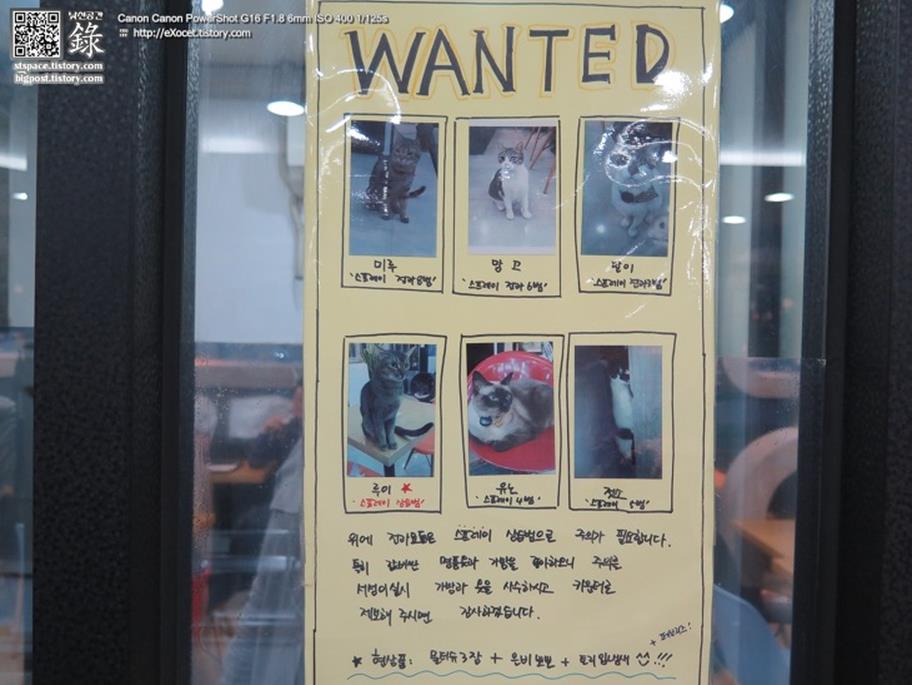 남신공간
錄
stspace.tistory.com
bigpost.tistory.com
Canon Canon PowerShot G16 F1.8 6mm ISO 400 1/125s
http://eXocet.tistory.com
WANTED
미루
"스프레이 전과8범"
망고
"스프레이 전과6범"
달이
"스프레이 전과3범"
루이 ★
"스프레이 상습범"
유노
"스프레이 4범"
젖소
"스프레이 5범"
위에 전과묘들은 스프레이 상습범으로 주의가 필요합니다.
특히 값비싼 명품옷과 가방을 좋아하오니 주위를
서성이실시 가방과 옷을 사수하시고 카운터로
제보해 주시면 감사하겠습니다.
★ 현상품: 물티슈3장 + 은비뽀뽀 + 토리입냄새 !!!